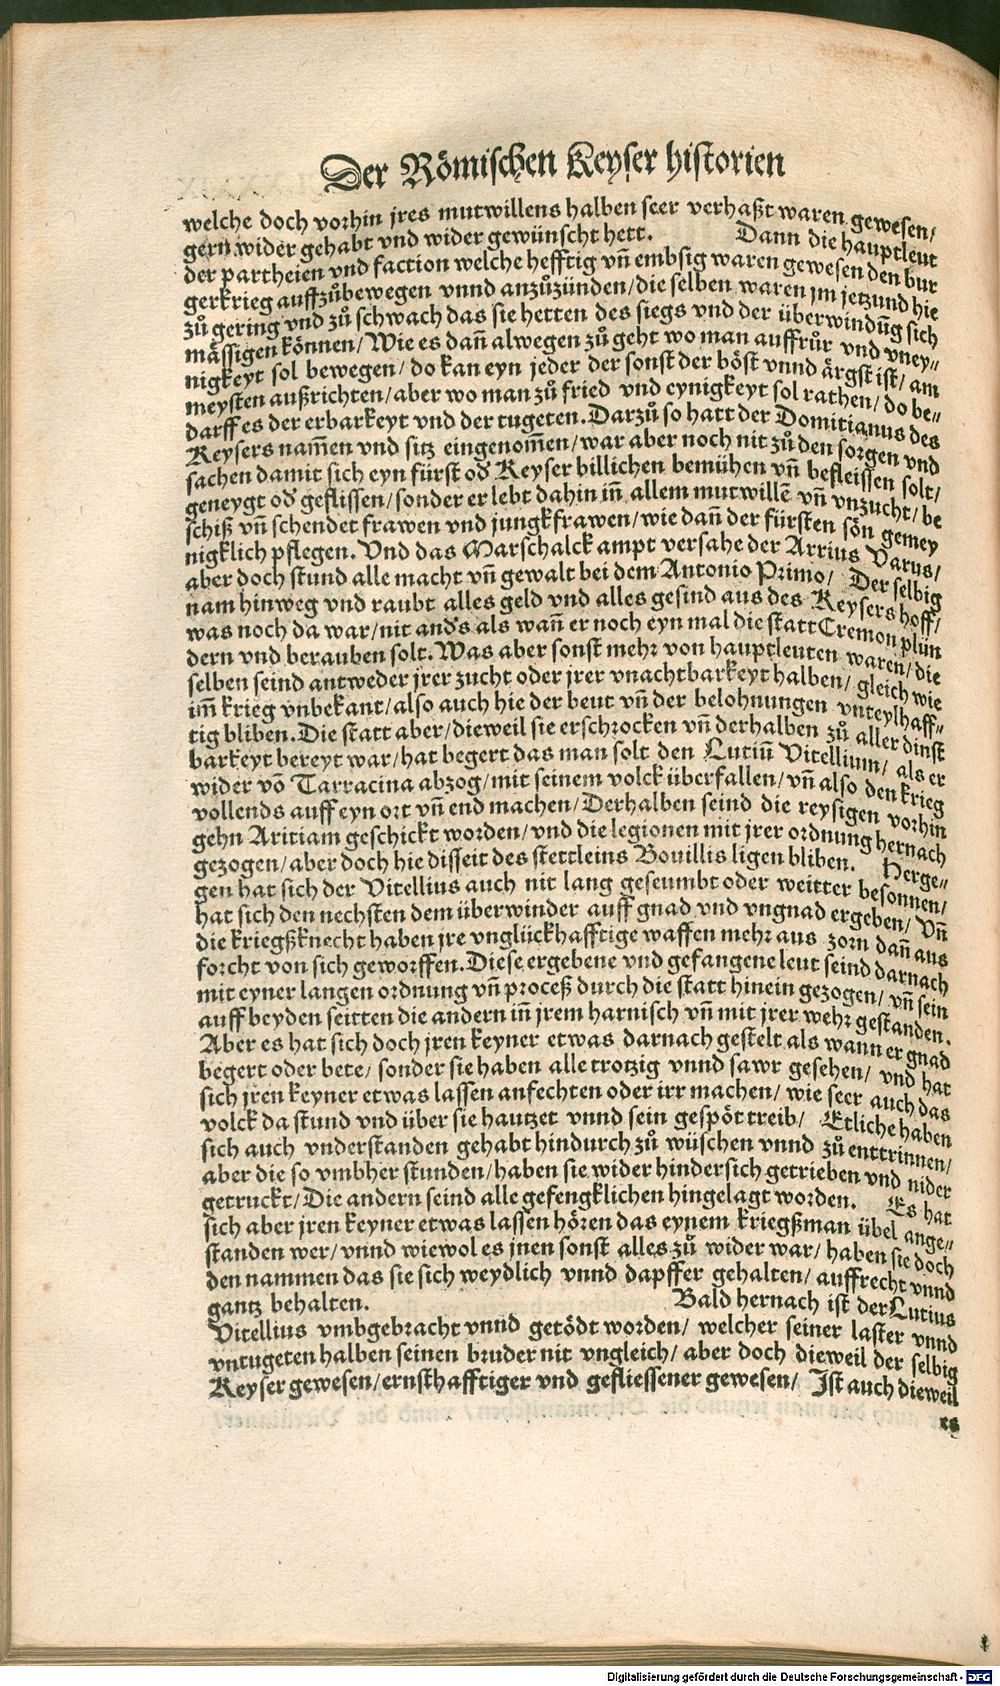 Der Römischen Keyser historien
welche doch vorhin jres mutwillens halben seer verhaßt waren gewesen/
gern wider gehabt vnd wider gewünscht hett. Dann die hauptleut
der partheien vnd faction welche hefftig vñ embsig waren gewesen den bur
gerkrieg auffzůbewegen vnnd anzůzünden/ die selben waren jm jetzund hie
zů gering vnd zů schwach das sie hetten des siegs vnd der überwindũg sich
mässigen können/ Wie es dañ alwegen zů geht wo man auffrůr vnd vney⸗
nigkeyt sol bewegen/ do kan eyn jeder der sonst der böst vnnd ärgst ist/ am
meysten außrichten/ aber wo man zů fried vnd eynigkeyt sol rathen/ do be⸗
darff es der erbarkeyt vnd der tugeten. Darzů so hatt der Domitianus des
Keysers nam̃en vnd sitz eingenom̃en/ war aber noch nit zů den sorgen vnd
sachen damit sich eyn fürst od̕ Keyser billichen bemühen vñ befleissen solt/
geneygt od̕ geflissen/ sonder er lebt dahin iñ allem mutwillẽ vñ vnzucht/ be
schiß vñ schendet frawen vnd jungkfrawen/ wie dañ der fürsten sön gemey
nigklich pflegen. Vnd das Marschalck ampt versahe der Arrius Varus/
aber doch stund alle macht vñ gewalt bei dem Antonio Primo/ Der selbig
nam hinweg vnd raubt alles geld vnd alles gesind aus des Keysers hoff/
was noch da war/ nit and̕s als wañ er noch eyn mal die statt Cremon plün
dern vnd berauben solt. Was aber sonst mehr von hauptleuten waren/ die
selben seind antweder jrer zucht oder jrer vnachtbarkeyt halben/ gleich wie
im̃ krieg vnbekant/ also auch hie der beut vñ der belohnungen vnteylhaff⸗
tig bliben. Die statt aber/ dieweil sie erschrocken vñ derhalben zů aller dinst
barkeyt bereyt war/ hat begert das man solt den Lutiũ Vitellium/ als er
wider võ Tarracina abzog/ mit seinem volck überfallen/ vñ also den krieg
vollends auff eyn ort vñ end machen/ Derhalben seind die reysigen vorhin
gehn Aritiam geschickt worden/ vnd die legionen mit jrer ordnung hernach
gezogen/ aber doch hie disseit des stettleins Bouillis ligen bliben. Herge⸗
gen hat sich der Vitellius auch nit lang geseumbt oder weitter besonnen/
hat sich den nechsten dem überwinder auff gnad vnd vngnad ergeben/ Vñ
die kriegßknecht haben jre vnglückhafftige waffen mehr aus zorn dañ aus
forcht von sich geworffen. Diese ergebene vnd gefangene leut seind darnach
mit eyner langen ordnung vñ proceß durch die statt hinein gezogen/ vñ sein
auff beyden seitten die andern iñ jrem harnisch vñ mit jrer wehr gestanden.
Aber es hat sich doch jren keyner etwas darnach gestelt als wann er gnad
begert oder bete/ sonder sie haben alle trotzig vnnd sawr gesehen/ vnd hat
sich jren keyner etwas lassen anfechten oder irr machen/ wie seer auch das
volck da stund vnd über sie hautzet vnnd sein gespöt treib/ Etliche haben
sich auch vnderstanden gehabt hindurch zů wüschen vnnd zů enttrinnen/
aber die so vmbher stunden/ haben sie wider hindersich getrieben vnd nider
getruckt/ Die andern seind alle gefengklichen hingelagt worden. Es hat
sich aber jren keyner etwas lassen hören das eynem kriegßman übel ange⸗
standen wer/ vnnd wiewol es jnen sonst alles zů wider war/ haben sie doch
den nammen das sie sich weydlich vnnd dapffer gehalten/ auffrecht vnnd
gantz behalten. Bald hernach ist der Lutius
Vitellius vmbgebracht vnnd getödt worden/ welcher seiner laster vnnd
vntugeten halben seinen bruder nit vngleich/ aber doch dieweil der selbig
Keyser gewesen/ ernsthafftiger vnd gefliessener gewesen/ Ist auch dieweil
es
Digitalisierung gefördert durch die Deutsche Forschungsgemeinschaft - DFG